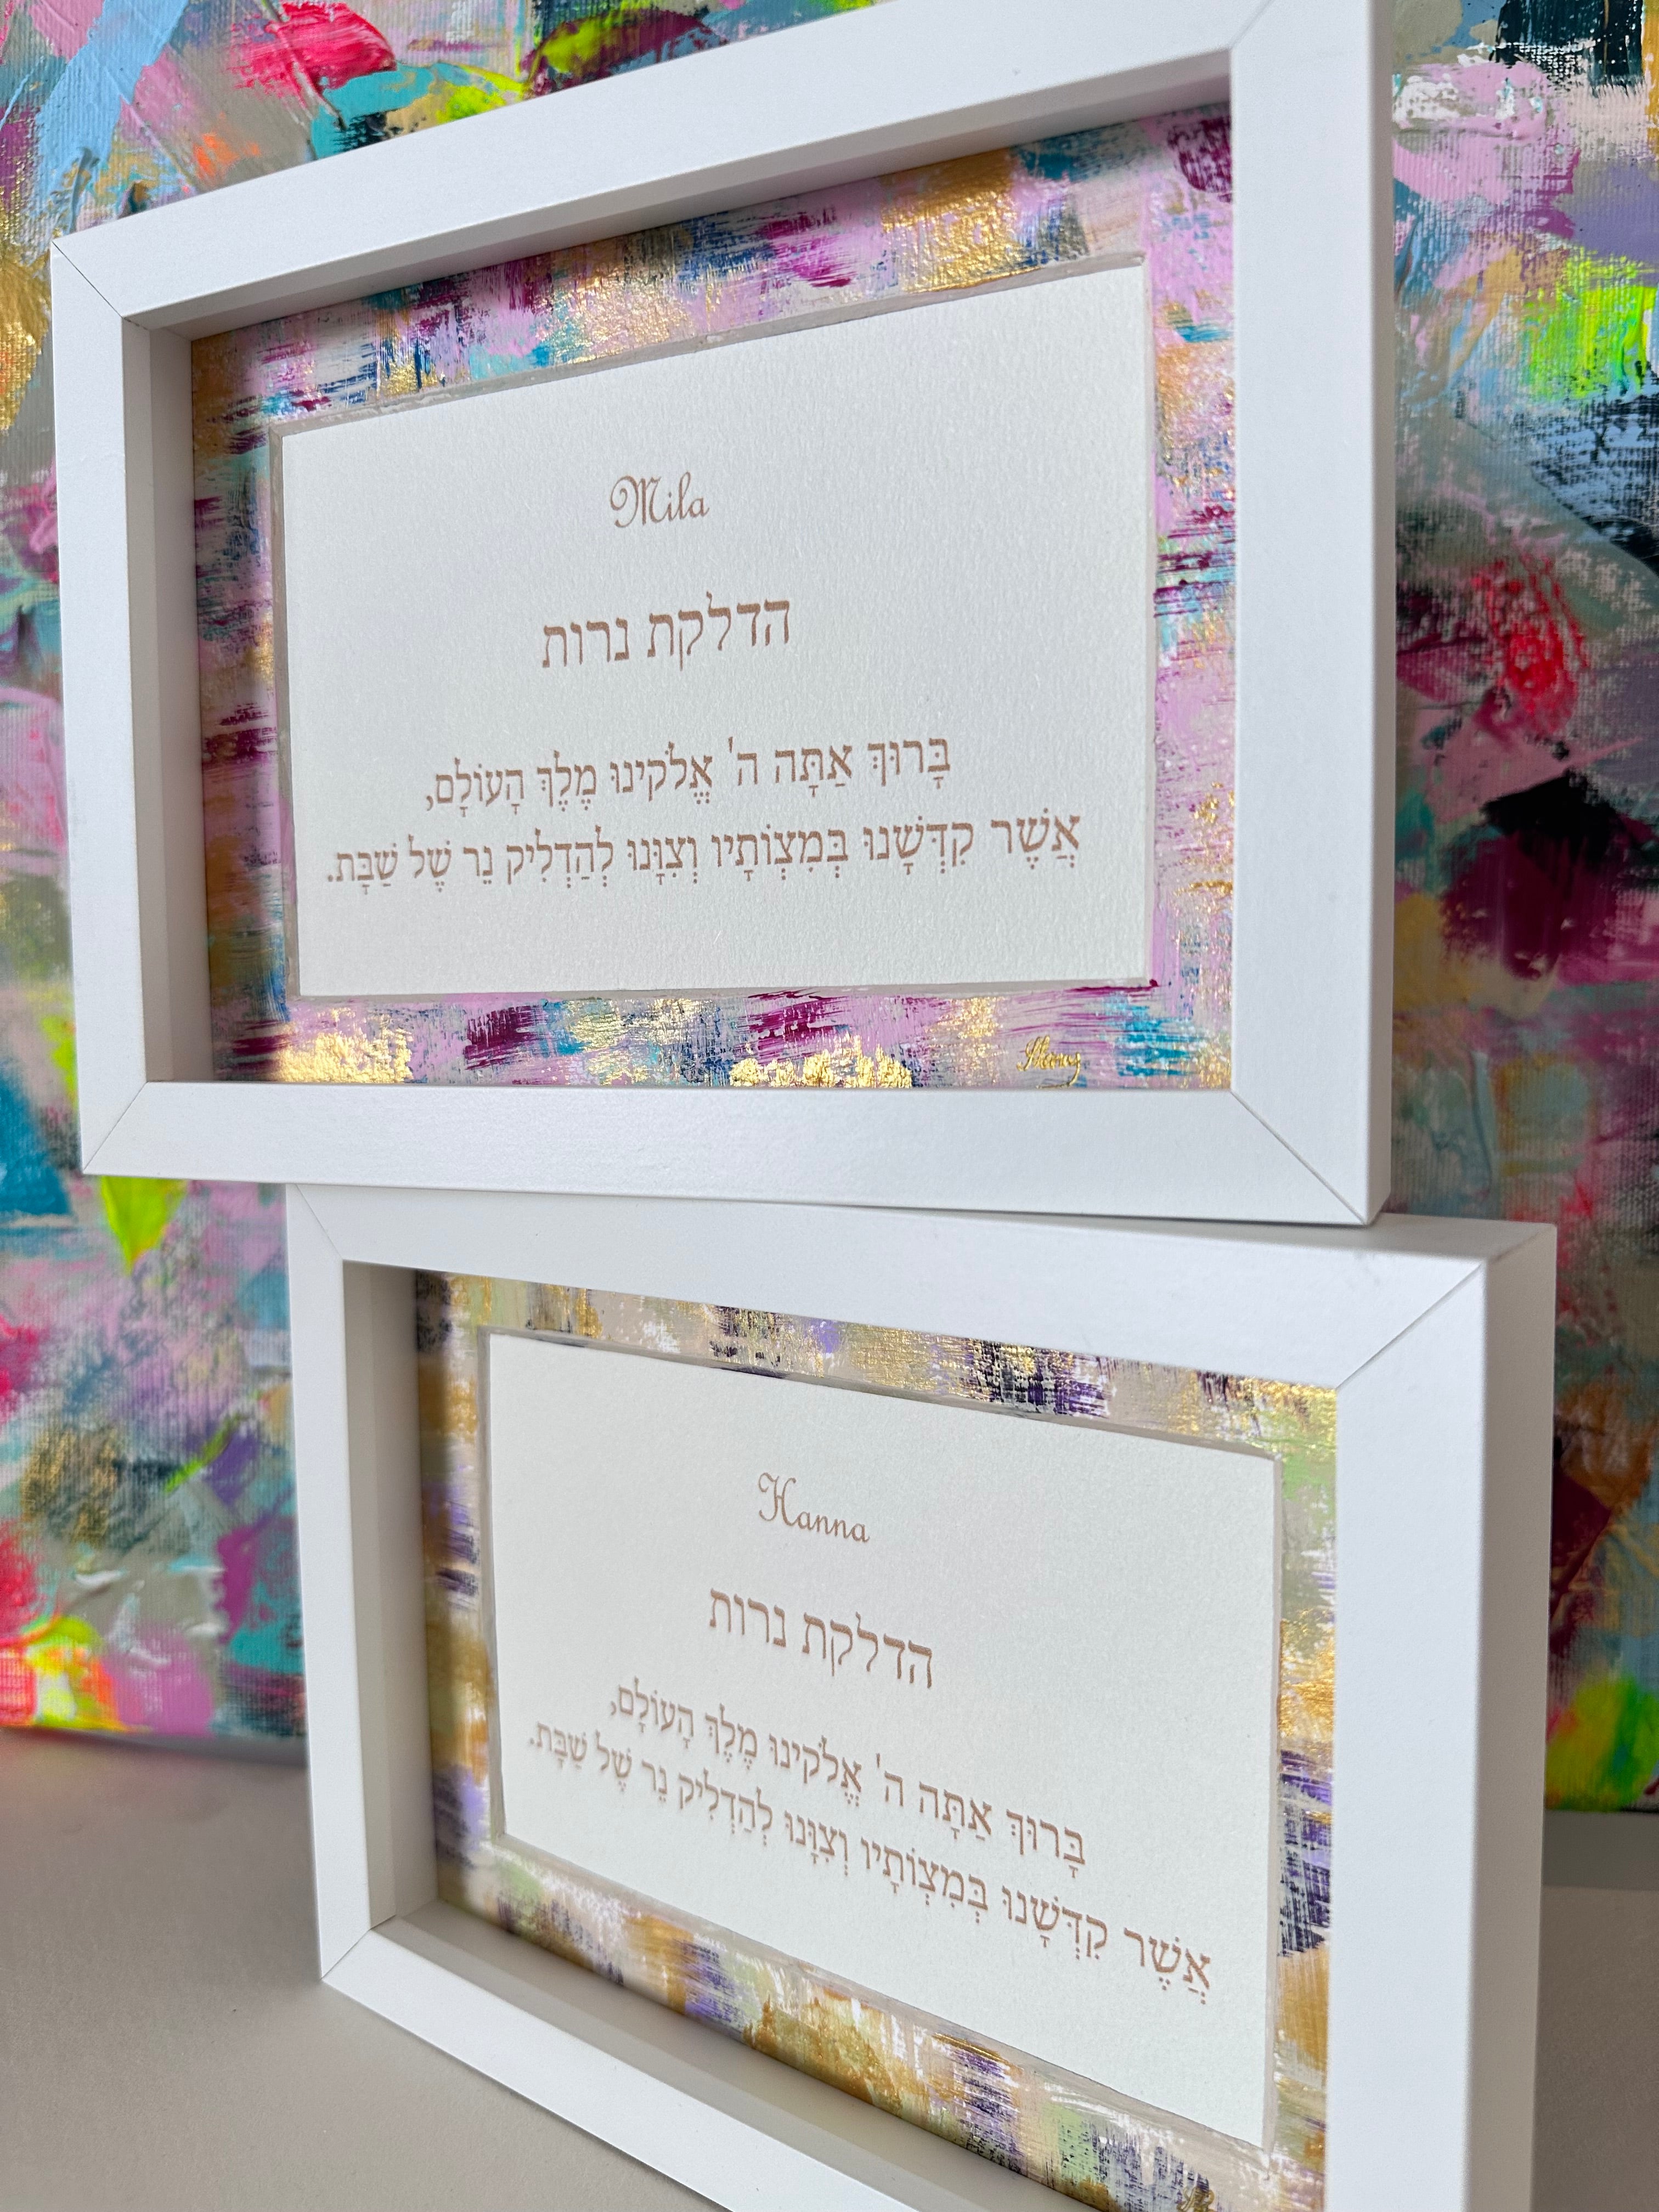 Mila
הדלקת נרות
בָּרוּךְ אַתָּה ה' אֱלֹקֵינוּ מֶלֶךְ הָעוֹלָם,
אֲשֶׁר קִדְּשָׁנוּ בְּמִצְוֹתָיו וְצִוָּנוּ לְהַדְלִיק נֵר שֶׁל שַׁבָּת.
Hanna
הדלקת נרות
בָּרוּךְ אַתָּה ה' אֱלֹקֵינוּ מֶלֶךְ הָעוֹלָם,
אֲשֶׁר קִדְּשָׁנוּ בְּמִצְוֹתָיו וְצִוָּנוּ לְהַדְלִיק נֵר שֶׁל שַׁבָּת.